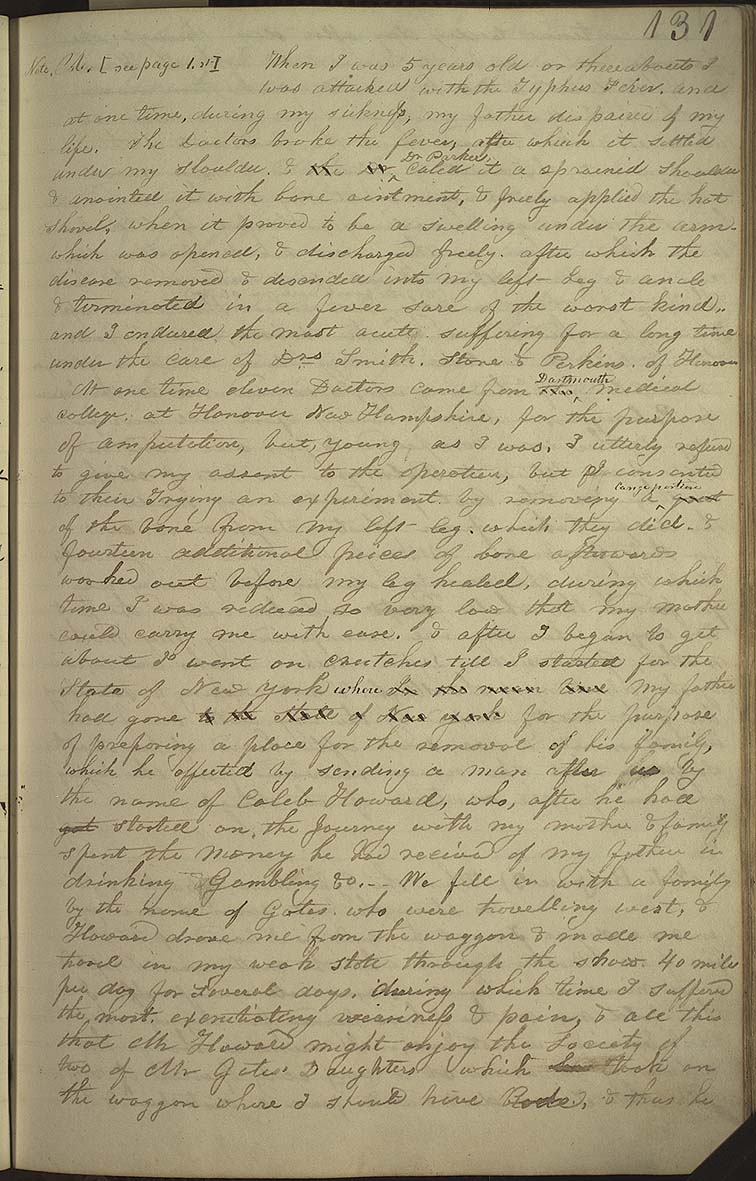 131
Note, C. [see page 1.st] When I was 5 years old or thereabouts I
was attacked with the Typhus Fever, and
at one time, during my sickness, my father dispaired of my
life. The Doctors broke the fever, after which it settled
under my shoulder. & the Dr. Parker, caled it a sprained shoulder
& anointed it with bone ointment, & freely applied the hot
shovel, when it proved to be a swelling under the arm
which was opened, & discharged freely. after which the
disease removed & desended into my left Leg & ancle
& terminated in a fever sore of the worst kind,
and I endured the most acute suffering for a long time
under the care of Drs Smith. Stone & Perkins. of Hanover
At one time eleven Doctors came from Dartmouth medical
college, at Hanover New Hampshire, for the purpose
of amputation, but, young as I was, I utterly refused
to give my assent to the operation, but I consented
to their Trying an experiment by removing a large portion
of the bone from my left leg. which they did. &
fourteen additional peices of bone afterwards
worked out before my leg healed, during which
time I was reduced so very low that my mother
could carry me with ease. & after I began to get
about I went on crutches till I started for the
State of New York where my father
had gone to the State of New york for the purpose
of preparing a place for the removal of his family,
which he affected by sending a man after us by
the name of Caleb Howard, who, after he had
got started on the Journey with my mother & family
spent the money he had received of my father in
drinking & Gambling &c.— We fell in with a family
by the name of Gates who were travelling west, &
Howard drove me from the waggon & made me
travel in my weak state through the snow 40 miles
per day for several days, during which time I suffered
the most excrutiating weariness & pain, & all this
that Mr Howard might enjoy the Society of
two of Mr Gates' Daughters which took on
the waggon where I should have Rode, & thus he